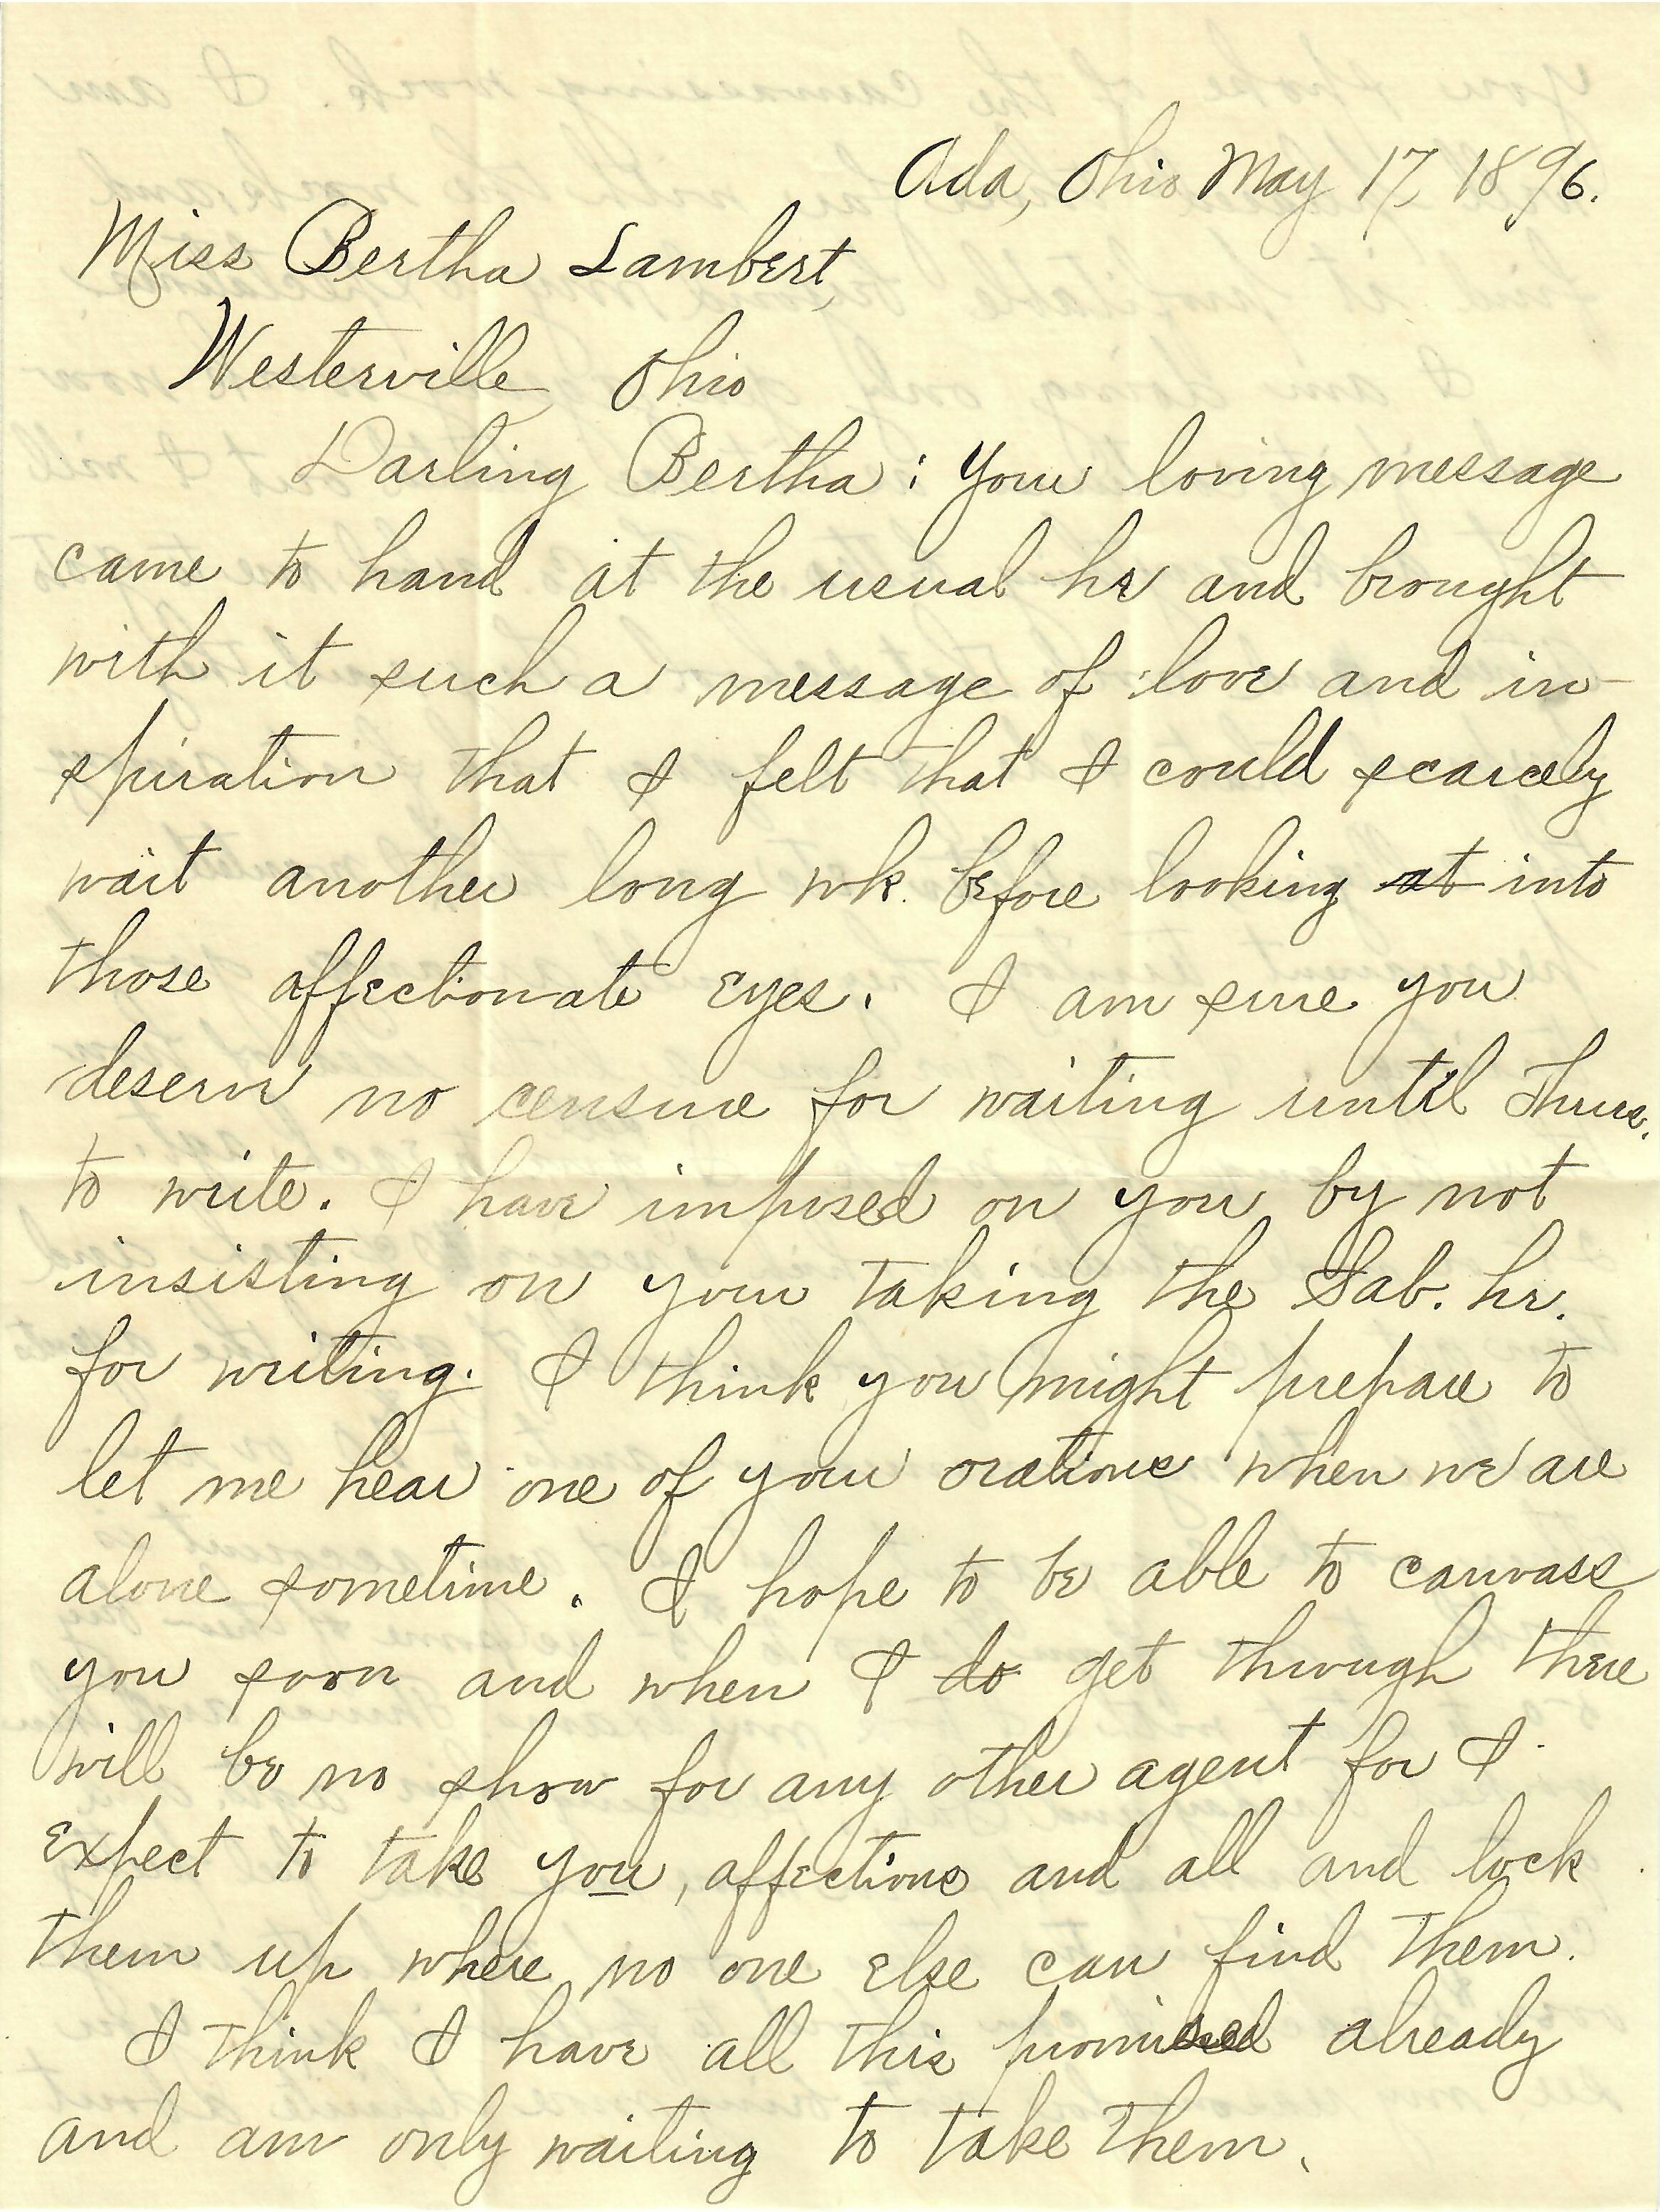 Ada, Ohio May 17, 1896.
Miss Bertha Lambert,
Westerville, Ohio
Darling Bertha: Your loving message
came to hand at the usual hr and brought
with it such a message of love and in-
spiration that I felt that I could scarcely
wait another long wk. before looking at into
those affectionate eyes. I am sure you
deserve no censure for waiting until Thurs.
to write. I have imposed on you by not
insisting on your taking the Sab. hr.
for writing. I think you might prepare to
let me hear one of your orations when we are
alone sometime. I hope to be able to canvass
you soon and when I do get through there
will be no show for any other agent for I
expect to take you, affections and all and lock
them up where no one else can find them.
I think I have all this promised already
and am only waiting to take them.